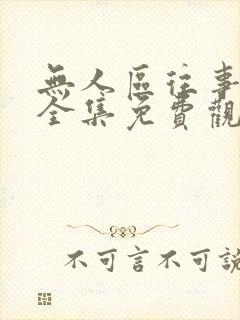 無人區往事
全集免費觀
不可言不可說